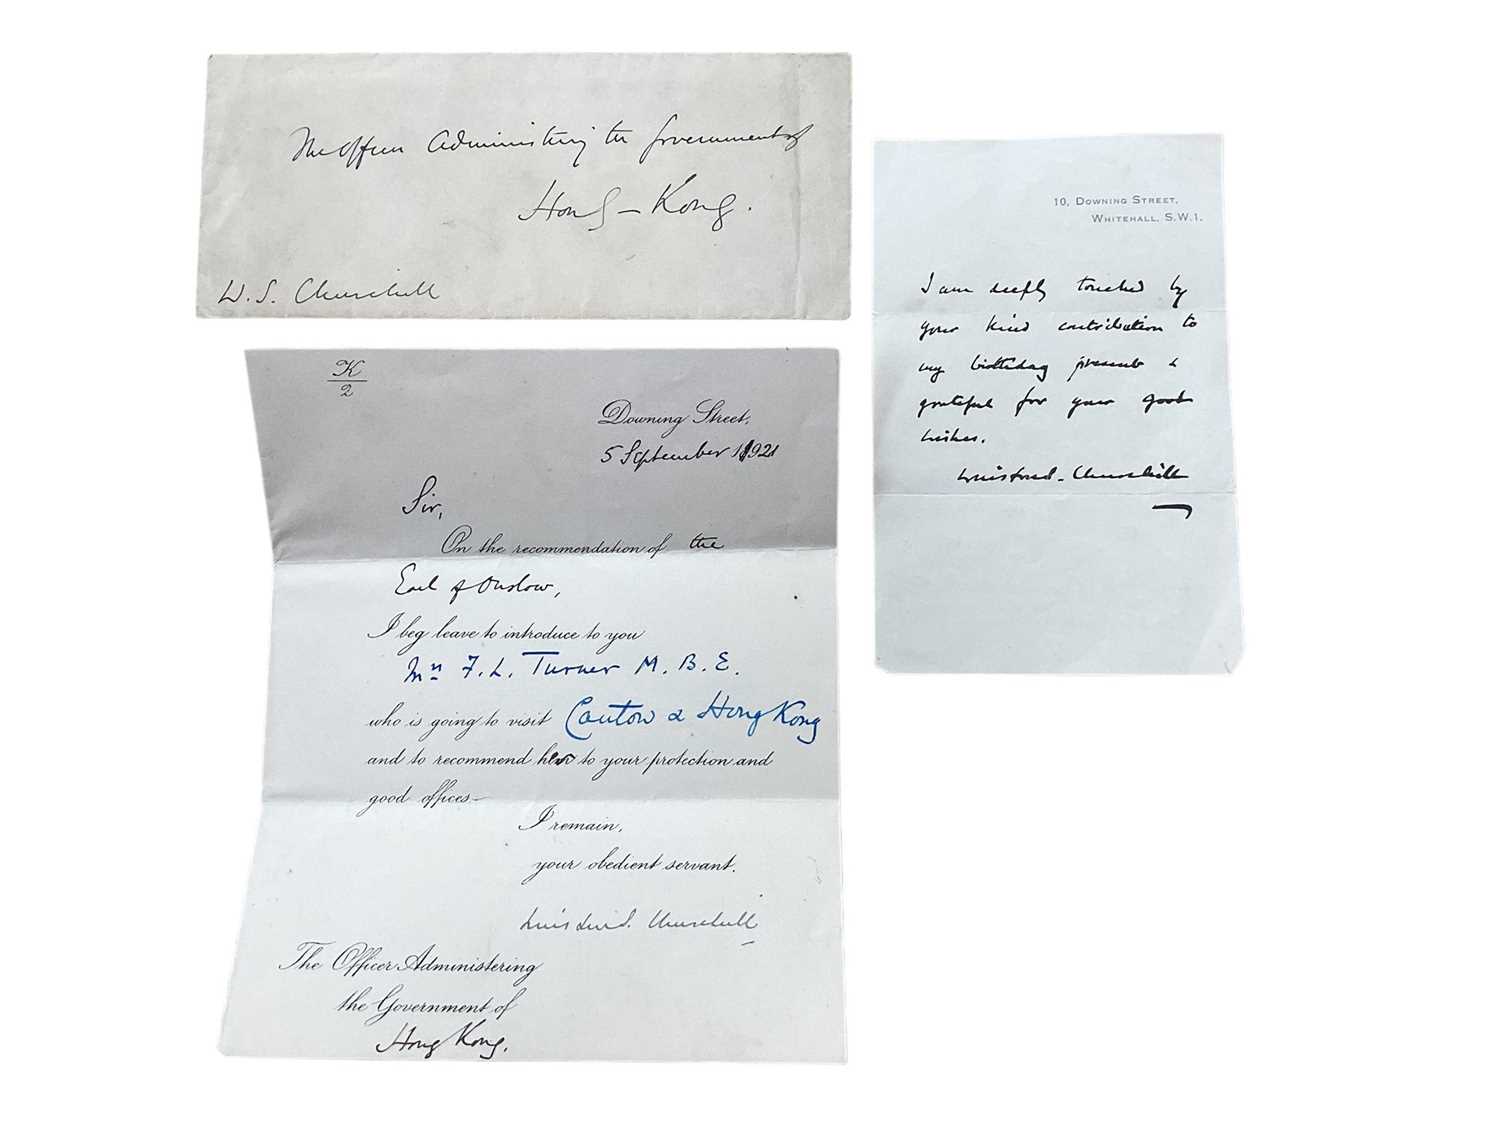 The Officer Administering the Government of
Hong-Kong.
W. S. Churchill
K
2
Downing Street,
5 September 1921
Sir,
On the recommendation of the
Earl of Onslow,
I beg leave to introduce to you
F. L. Turner M. B. E.
who is going to visit Canton & Hong Kong
and to recommend her to your protection and
good offices—
I remain,
your obedient servant.
Winston S. Churchill
The Officer Administering
the Government of
Hong Kong.
10, Downing Street,
Whitehall, S.W.1.
I am deeply touched by
your kind contribution to
my birthday present &
grateful for your good
wishes.
Winston S. Churchill